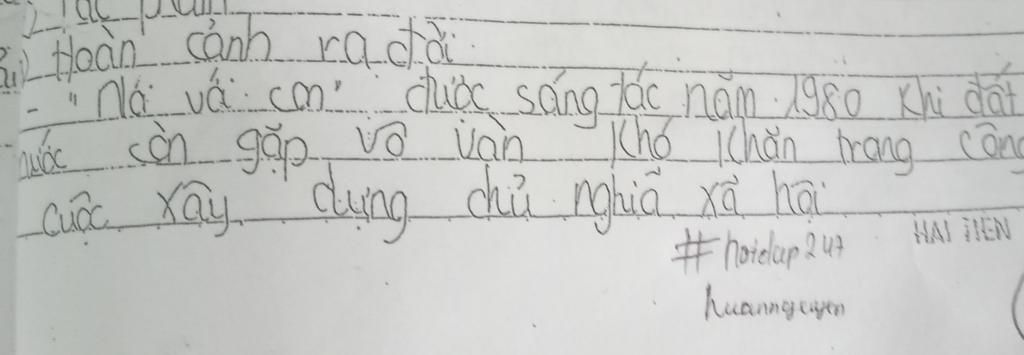 2) Tác phẩm
a) Hoàn cảnh ra đời
- "Nói với con" được sáng tác năm 1980 khi đất
nước còn gặp vô vàn khó khăn trong công
cuộc xây dựng chủ nghĩa xã hội
HẢI TIẾN
#hoidap247
huannguyen